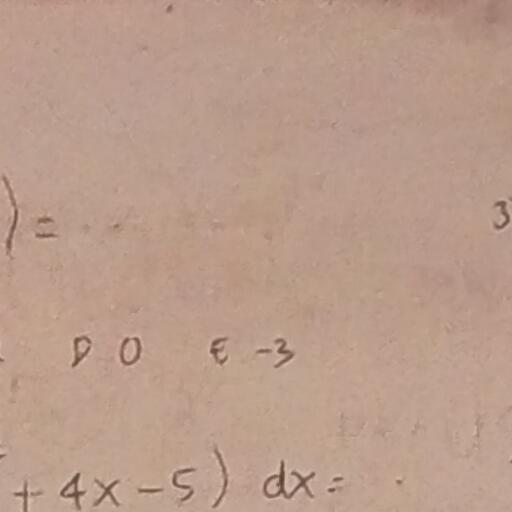 ) = . .
3
D 0 E -3
+ 4x - 5) dx = .